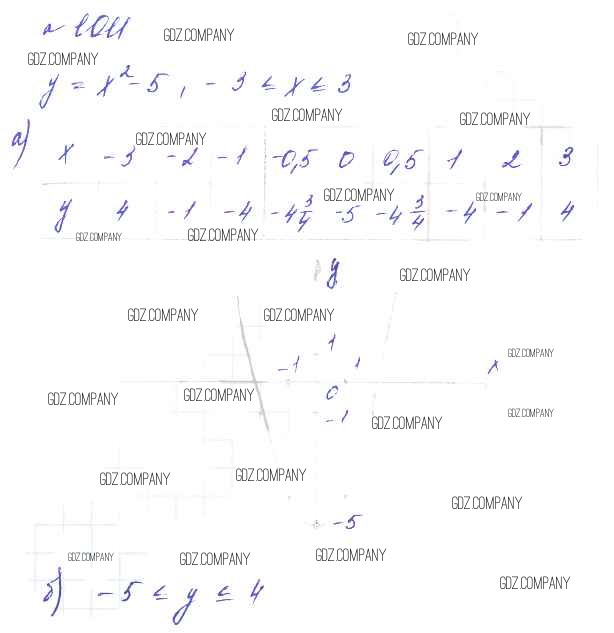 № 1011
GDZ.COMPANY GDZ.COMPANY
GDZ.COMPANY
y = x² - 5, -3 ≤ x ≤ 3
GDZ.COMPANY GDZ.COMPANY
а) GDZ.COMPANY
x -3 -2 -1 -0,5 0 0,5 1 2 3
GDZ.COMPANY GDZ.COMPANY
y 4 -1 -4 -4 3/4 -5 -4 3/4 -4 -1 4
GDZ.COMPANY GDZ.COMPANY
y GDZ.COMPANY
GDZ.COMPANY GDZ.COMPANY
1
GDZ.COMPANY
-1 1 x
GDZ.COMPANY GDZ.COMPANY 0
GDZ.COMPANY
-1 GDZ.COMPANY
GDZ.COMPANY GDZ.COMPANY
GDZ.COMPANY
-5
GDZ.COMPANY GDZ.COMPANY GDZ.COMPANY
GDZ.COMPANY
б) -5 ≤ y ≤ 4